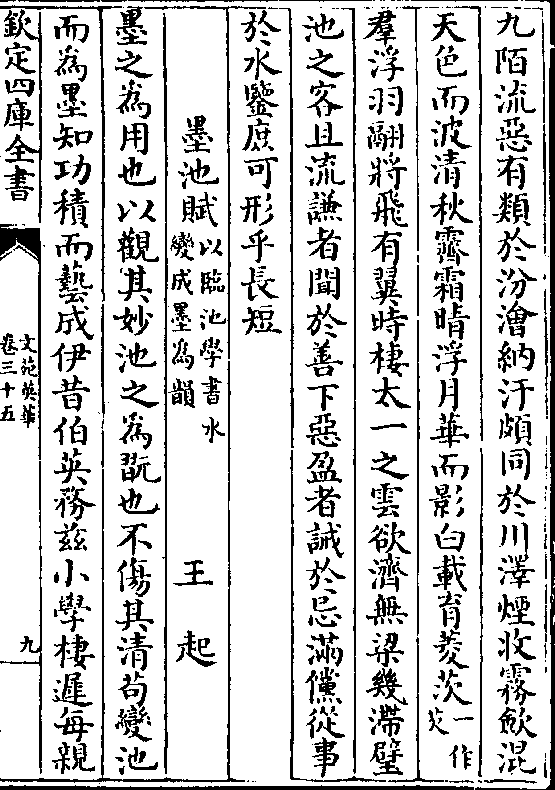 九陌流惡有類於汾澮納汗頗同於川澤煙收霧歛混
天色而波清秋霽霜晴浮月華而影白載育菱茨一作芡
羣浮羽翮將飛有翼時棲太一之雲欲濟無梁幾滯璧
池之客且流謙者聞於善下惡盈者誡於忌滿儻從事
於水鑒庶可形乎長短
墨池賦以臨池學書水變成墨為韻 王起
墨之為用也以觀其妙池之為翫也不傷其清茍變池
而為墨知功積而藝成伊昔伯英務茲小學棲遲每親
欽定四庫全書
文苑英華
卷三十五
九